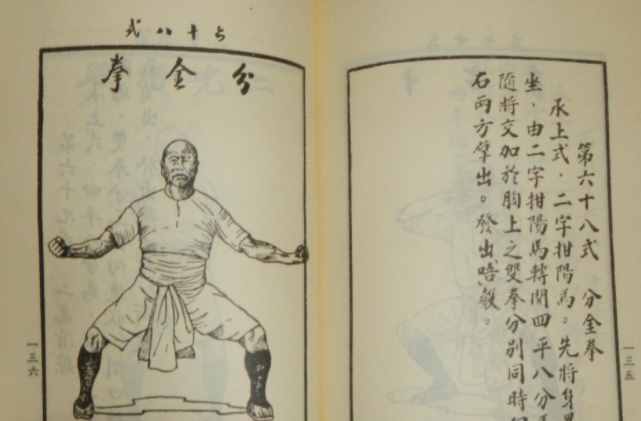 第六十八式　分金拳
承上式．二字拑陽馬。先將身
坐．由二字拑陽馬轉開四平八分
隨將交加於胸上之雙拳分別同時
右兩方撑出。發出唔聲。
一三五
六十八式
分金拳
一三六